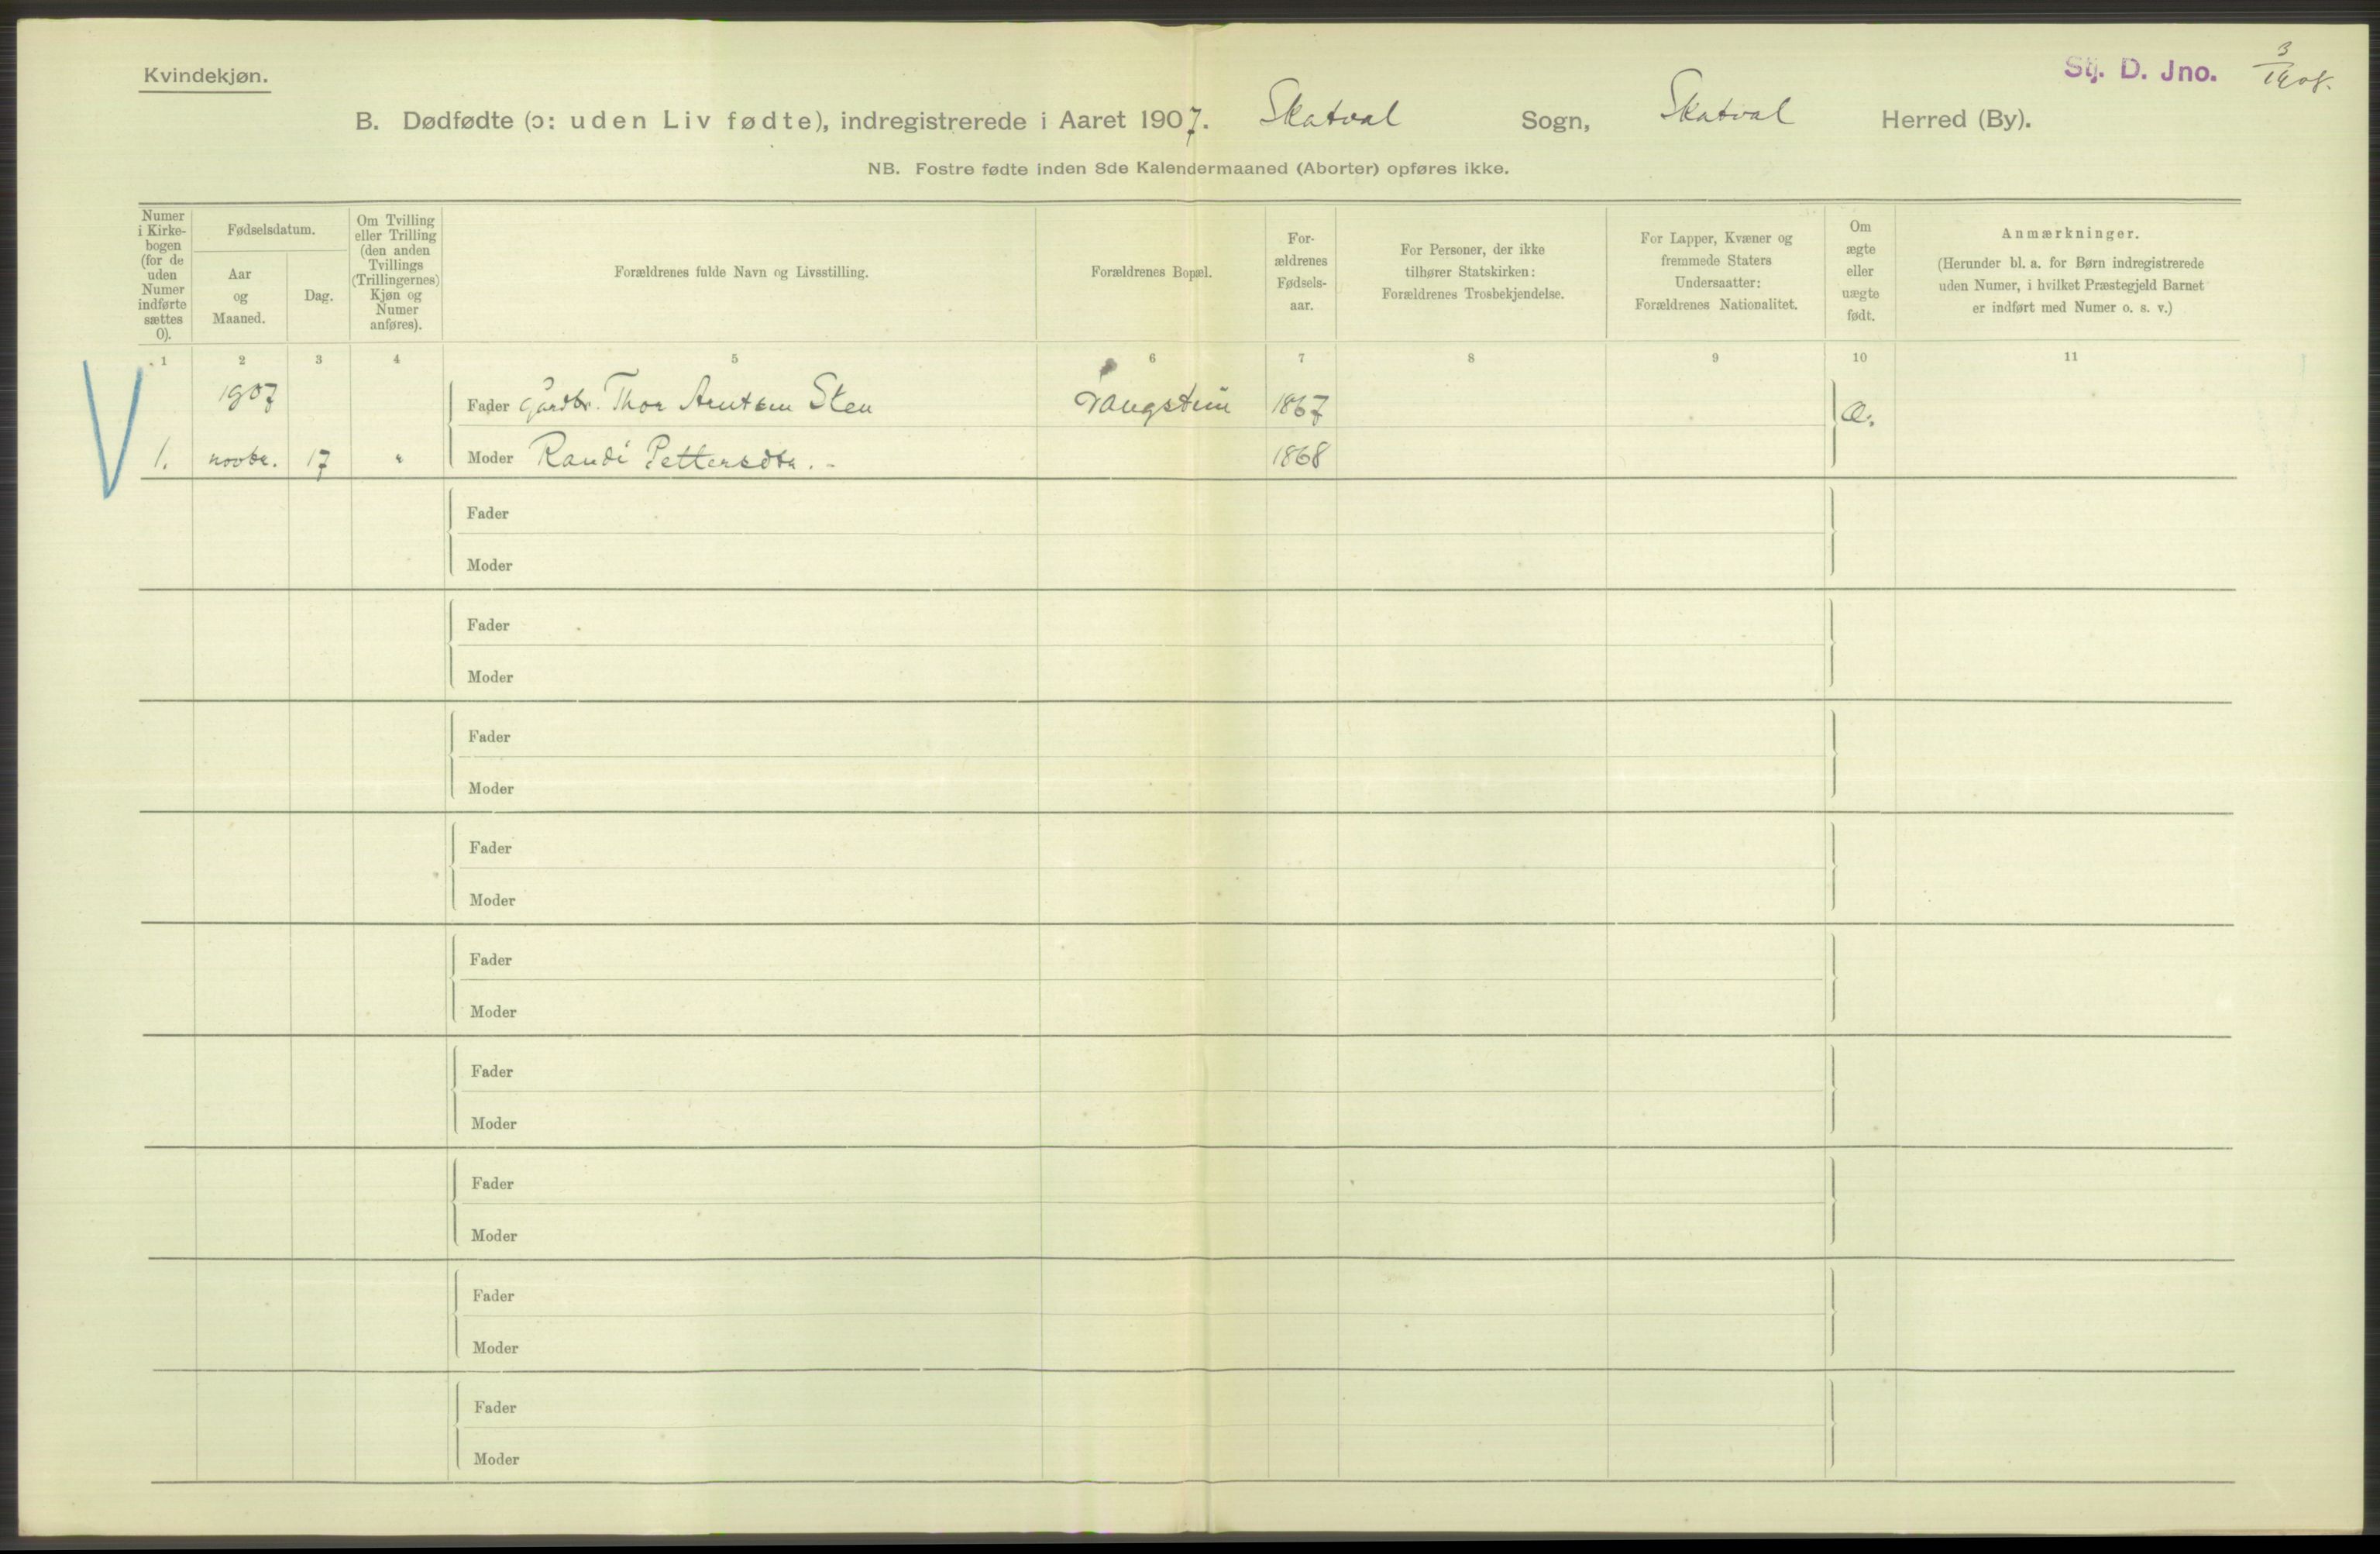 Kvindekjøn.
Stj. D. Jno. 3/1908.
B. Dødfødte (ɔ: uden Liv fødte), indregistrerede i Aaret 1907. Skatval Sogn, Skatval Herred (By).
NB. Fostre fødte inden 8de Kalendermaaned (Aborter) opføres ikke.
Numer
i Kirke-
bogen
(for de
uden
Numer
indførte
sættes
0).
Fødselsdatum.
Aar
og
Maaned.
Dag.
Om Tvilling
eller Trilling
(den anden
Tvillings
(Trillingernes)
Kjøn og
Numer
anføres).
Forældrenes fulde Navn og Livsstilling.
Forældrenes Bopæl.
For-
ældrenes
Fødsels-
aar.
For Personer, der ikke
tilhører Statskirken:
Forældrenes Trosbekjendelse.
For Lapper, Kvæner og
fremmede Staters
Undersaatter:
Forældrenes Nationalitet.
Om
ægte
eller
uægte
født.
Anmærkninger.
(Herunder bl. a. for Børn indregistrerede
uden Numer, i hvilket Præstegjeld Barnet
er indført med Numer o. s. v.)
1 2 3 4 5 6 7 8 9 10 11
1907 Fader Gårdbr. Thor Arntsen Sten 1867 Æ.
1. novbr. 17 " Moder Randi Pettersdtr. - 1868
Fader
Moder
Fader
Moder
Fader
Moder
Fader
Moder
Fader
Moder
Fader
Moder
Fader
Moder
Fader
Moder
Fader
Moder